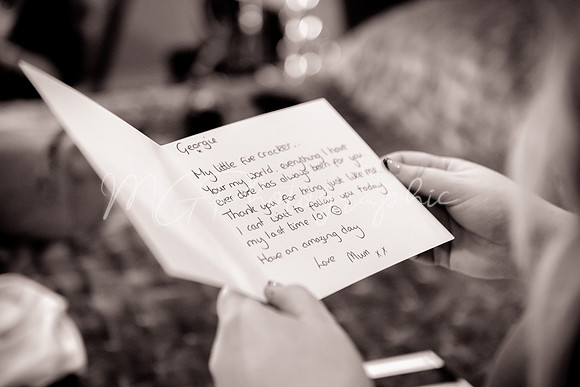 Georgie
My little fire cracker...
Your my world, everything I have
ever done has always been for you.
Thank you for being just like me.
I cant wait to follow you today
my last time lol ☺
Have an amazing day
Love Mum x x